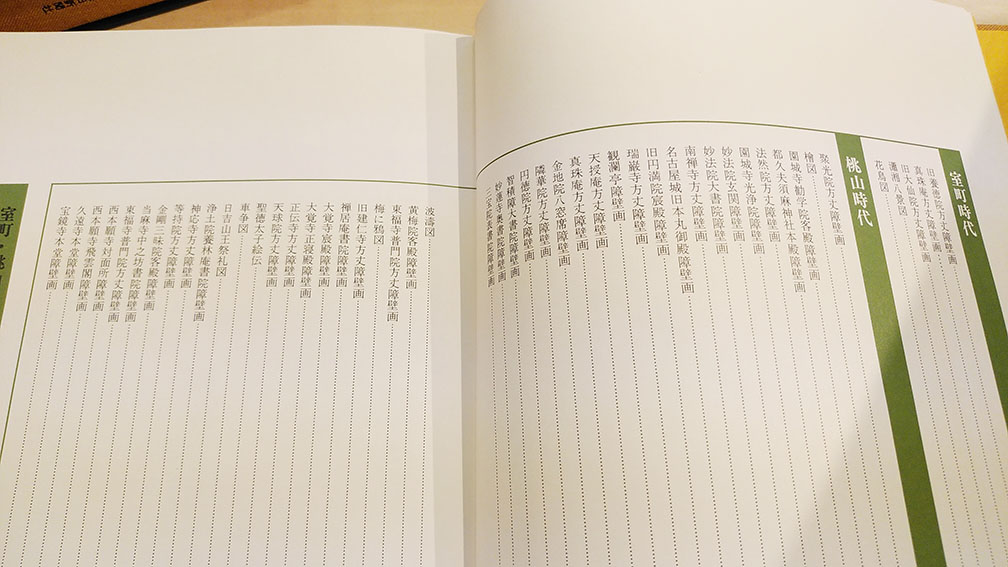 室町時代
旧養徳院方丈障壁画
真珠庵方丈障壁画
旧大仙院方丈障壁画
瀟湘八景図
花鳥図
桃山時代
聚光院方丈障壁画
檜図
園城寺勧学院客殿障壁画
都久夫須麻神社本殿障壁画
法然院方丈障壁画
園城寺光浄院障壁画
妙法院玄関障壁画
妙法院大書院障壁画
南禅寺方丈障壁画
名古屋城旧本丸御殿障壁画
旧円満院宸殿障壁画
瑞巌寺方丈障壁画
観瀾亭障壁画
天授庵方丈障壁画
真珠庵方丈障壁画
金地院八窓席障壁画
隣華院方丈障壁画
円徳院方丈障壁画
智積院大書院障壁画
妙蓮寺奥書院障壁画
三宝院表書院障壁画
波濤図
黄梅院客殿障壁画
東福寺普門院方丈障壁画
梅に鴉図
旧建仁寺方丈障壁画
禅居庵書院障壁画
大覚寺宸殿障壁画
大覚寺正寝殿障壁画
正伝寺方丈障壁画
天球院方丈障壁画
聖徳太子絵伝
車争図
日吉山王祭礼図
浄土院養林庵書院障壁画
神応寺方丈障壁画
等持院方丈障壁画
金剛三昧院客殿障壁画
当麻寺中之坊書院障壁画
東福寺普門院障壁画
西本願寺対面所障壁画
西本願寺飛雲閣障壁画
久遠寺本堂障壁画
宝鏡寺本堂障壁画
室町・桃